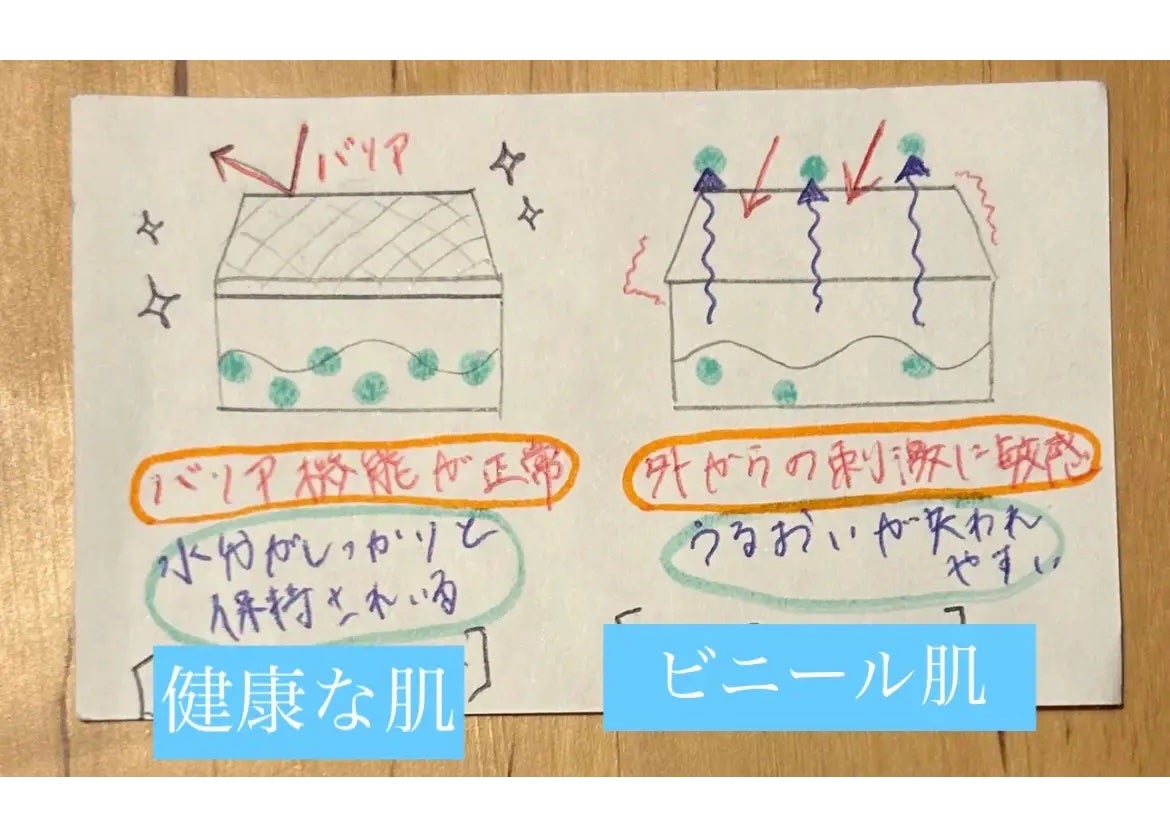 バリア
バリア機能が正常
水分がしっかりと
保持されいる
健康な肌
外からの刺激に敏感
うるおいが失われ
やすい
ビニール肌